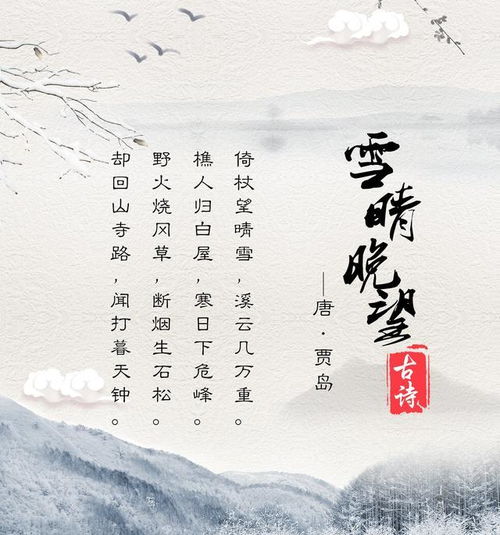 雪晴晚望
古诗
—唐·贾岛
倚杖望晴雪,溪云几万重。
樵人归白屋,寒日下危峰。
野火烧风草,断烟生石松。
却回山寺路,闻打暮天钟。